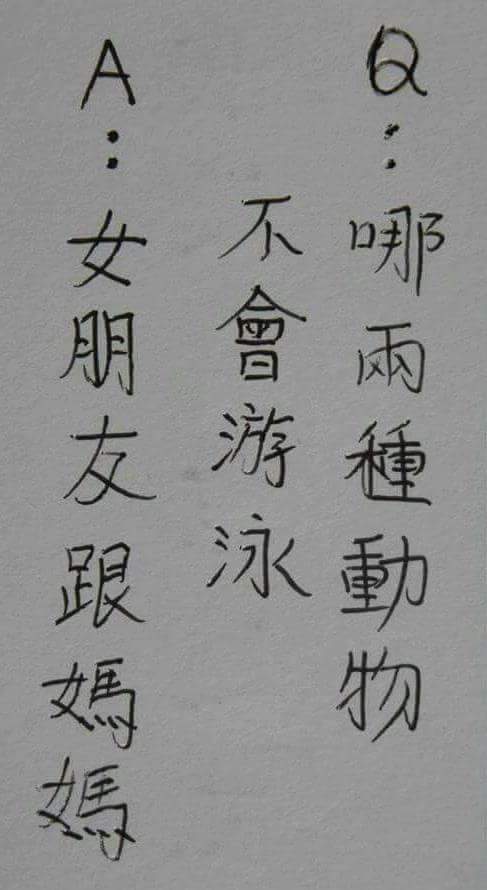 Q：哪兩種動物
不會游泳
A：女朋友跟媽媽